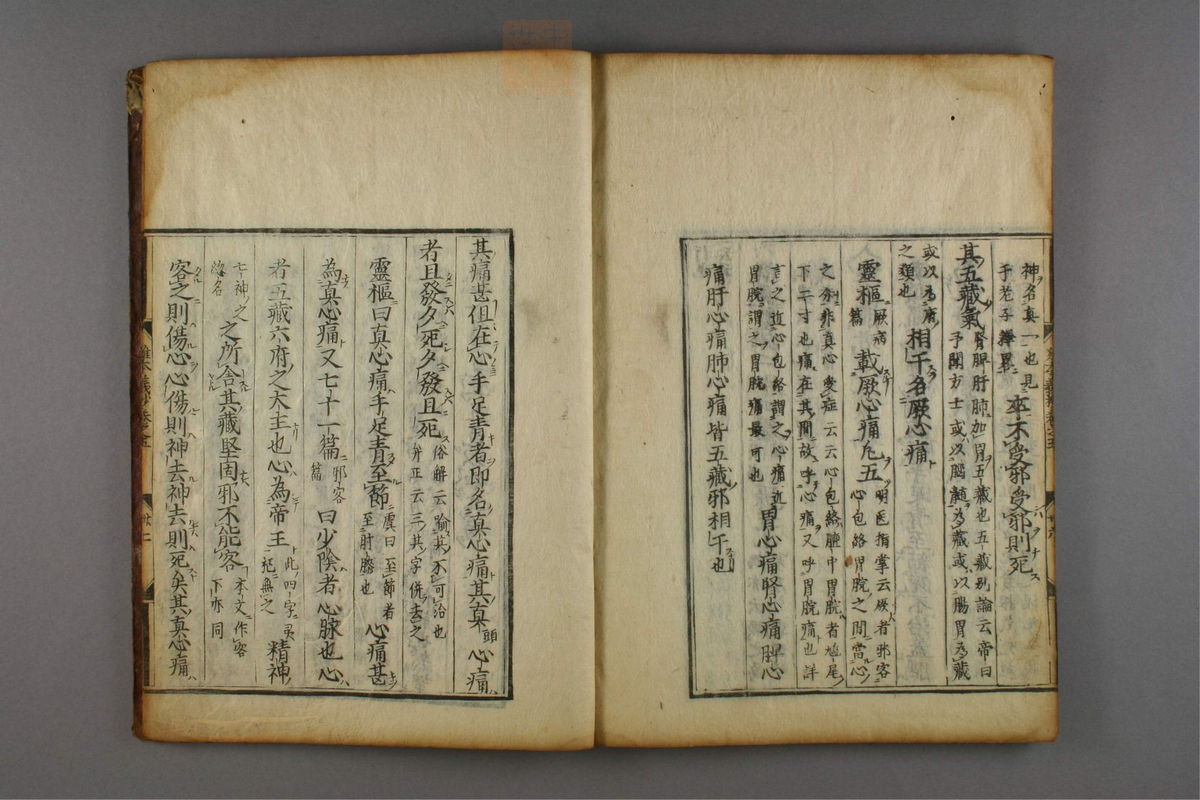 神名真一也見
于老子繹畧
卒不受邪受邪則死
其五藏氣
腎脾肝肺加胃五藏也五藏別論云帝曰
予聞方士或以腦髓為藏或以腸胃為藏
或以為府
之類也
相干名厥心痛
靈樞
厥病
篇
載厥心痛凡五
明医指掌云厥者邪客
心包絡胃脘之間當心
之分非真心受症云云心包絡膻中胃脘者鳩尾
下二寸也痛在其間故呼心痛又呼胃脘痛也詳
言之近心包絡謂之心痛近
胃脘謂之胃脘痛最可也
胃心痛腎心痛脾心
痛肝心痛肺心痛皆五藏邪相干也
其痛甚但在心手足青者即名真心痛其真
頭
心痛
者旦發夕死夕發旦死
俗解云踰其不可治也
弁正云三其字併去之
靈樞曰真心痛手足青至節
虞曰至節者
至肘膝也
心痛甚
為真心痛又七十一篇
邪客
篇
曰少陰者心脉也心
者五藏六府之大主也心為帝王
此四字灵
枢無之
精神
七神之
㧾名
之所舎其藏堅固邪不能客
本文作容
下亦同
客之則傷心心傷則神去神去則死矣其真心痛